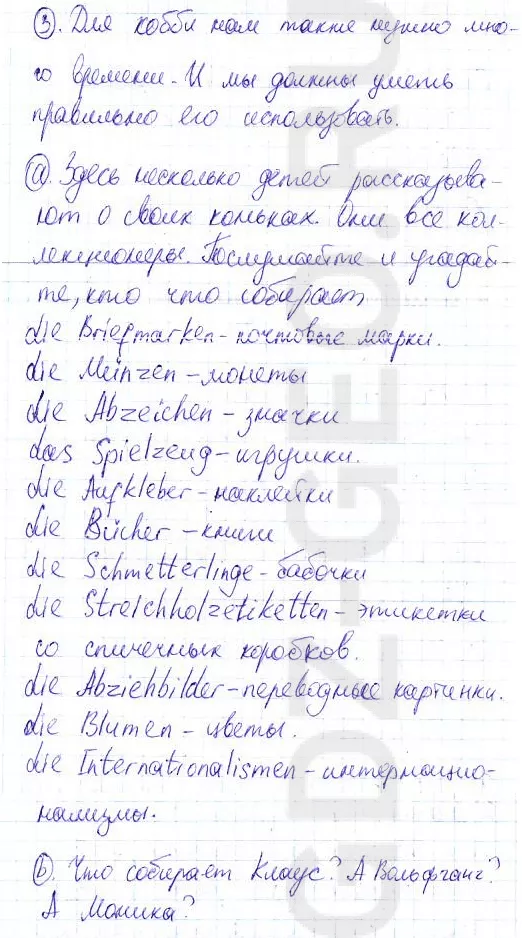 ③. Для хобби нам также нужно мно-
го времени. И мы должны уметь
правильно его использовать.
ⓐ. Здесь несколько детей рассказыва-
ют о своих коньках. Они все кол-
лекционеры. Послушайте и угадай-
те, кто что собирает
die Briefmarken - почтовые марки.
die Münzen - монеты
die Abzeichen - значки
das Spielzeug - игрушки.
die Aufkleber - наклейки
die Bücher - книги
die Schmetterlinge - бабочки
die Streichholzetiketten - этикетки
со спичечных коробков.
die Abziehbilder - переводные картинки.
die Blumen - цветы.
die Internationalismen - интернацио-
нализмы.
ⓑ. Что собирает Клаус? А Вольфганг?
А Моника?
GDZ-GEO.RU